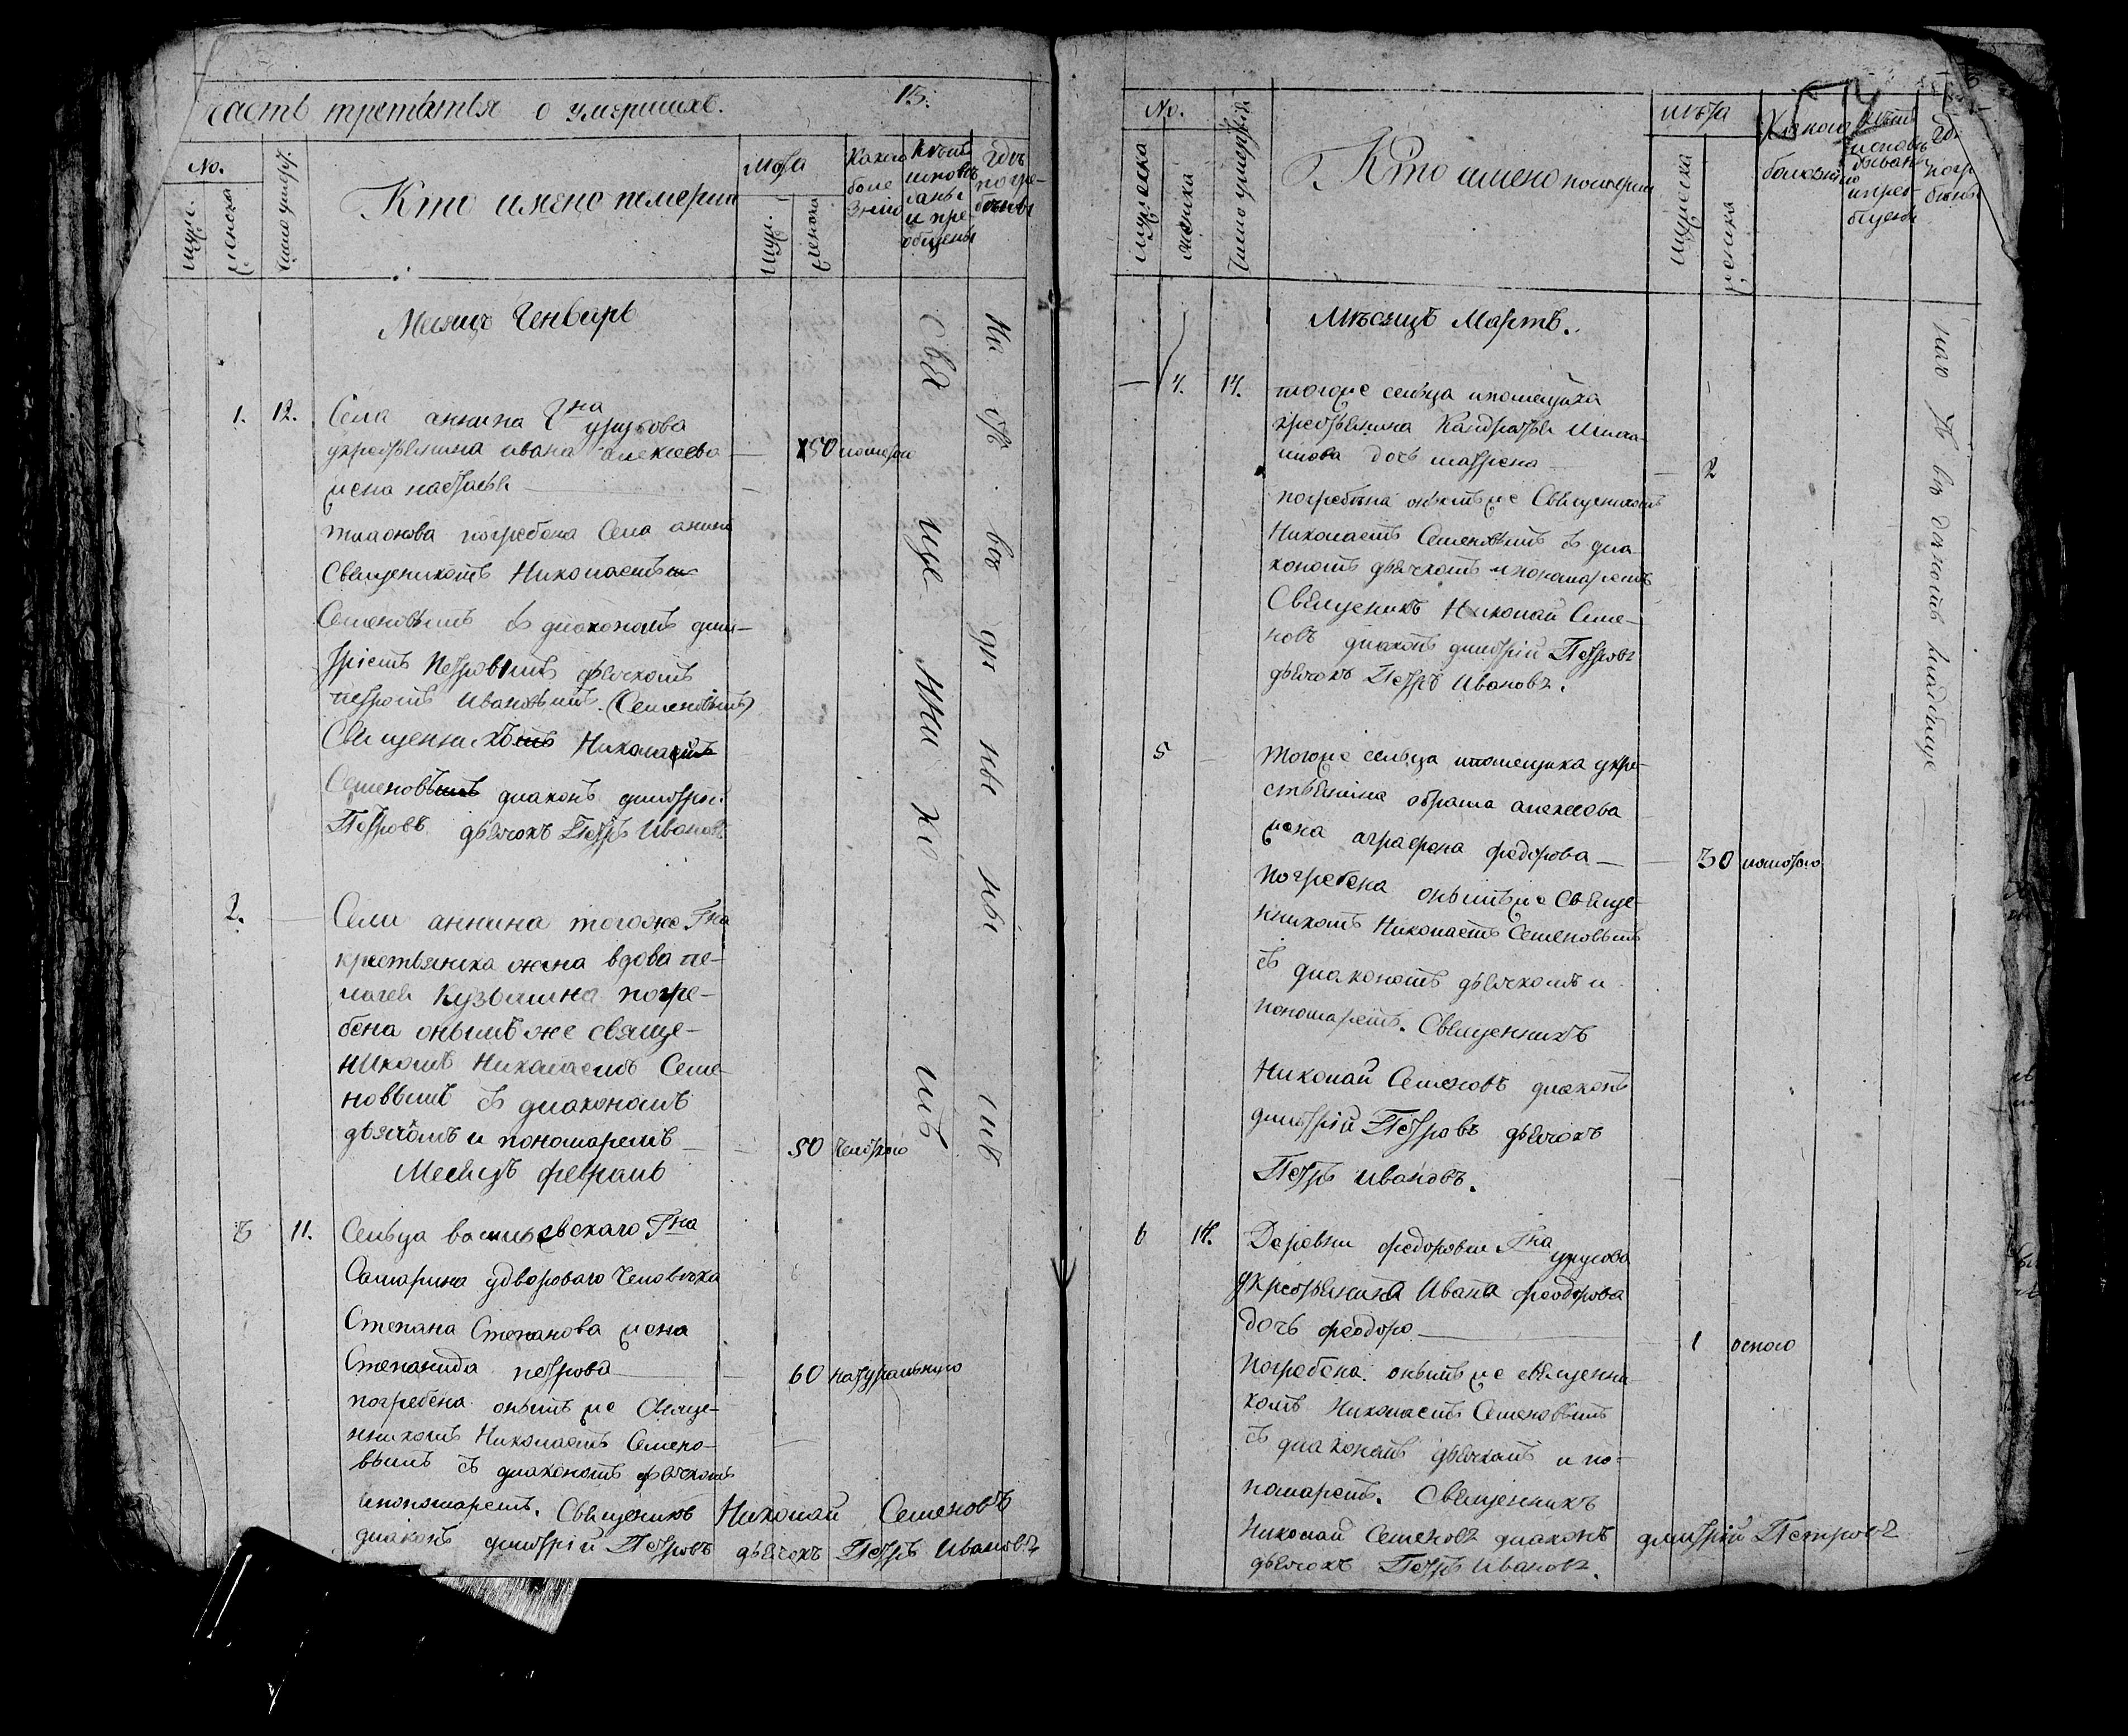 Часть третья о умершихъ. 13.
No.
Муж.
женска
Число умер.
Кто имено померли
Лѣта
Муж.
женска
Какою
боле
знію
Кѣмъ
исповѣ
даны
и пре-
общены
Гдѣ
погре-
бены
Месяцъ Генварь
1. 12. Села аннина Гна урусова
укрестьянина ивана алексеева 50
жена настасья
погребена Села анина
Священикомъ Николаемъ
Семеновымъ съ диакономъ дми-
тріемъ Петровымъ дьячкомъ
петромъ Ивановымъ. (Семеновымъ)
Священникъ Николай
Семеновъ диаконъ димитрій
Петровъ дьячокъ Петръ Ивановъ
2. Села аннина тогоже Гна
крестьянска жена вдова пе-
лагея Кузьмина погре-
бена онымъ же свяще-
никомъ Николаемъ Семе-
новымъ съ диакономъ
дьячкомъ и пономаремъ 80
Месяцъ февраль
3 11. Сельца васильевскаго Гна
Самарина удвороваго человека
Степана Степанова жена
Степанида петрова 60 натуральною
погребена онымъ же Свяще-
нникомъ Николаемъ Семено-
вымъ съ диакономъ дьячкомъ
ипономаремъ. Священикъ Николай Семеновъ
диаконъ димитрій Петровъ дьячокъ Петръ Ивановъ
Свя ще нни ко мъ
No.
мужеска
женска
Число умершихъ
Кто имено померли
Лѣта
мужеска
женска
Какою
болезнію
Кѣмъ
исповѣ
дываны
и прео-
бщены
Гдѣ
погр
бены
Мѣсяцъ Мартъ.
4. 14. тогоже сельца ипомещика
крестьянина Кандратья
дочь матрена 2
погребена онымъ же Священикомъ
Николаемъ Семеновымъ съ диа-
кономъ дьячкомъ ипономаремъ
Священикъ Николай Семе-
новъ диаконъ димитрій Петровъ
дьячокъ Петръ Ивановъ.
5 Тогоже сельца ипомещика укре-
стьянина абрама алексеева
жена аграфена федорова 30
погребена онымъ же Свяще-
нникомъ Николаемъ Семеновымъ
съ диакономъ дьячкомъ и
пономаремъ. Священникъ
Николай Семеновъ диаконъ
димитрій Петровъ дьячокъ
Петръ Ивановъ.
6 14. Деревни федоровки Гна урусова
укрестьянина Ивана феодорова
дочь феодора 1 оспою
погребена онымъ же священни-
комъ Николаемъ Семеновымъ
съ диакономъ дьячкомъ и по-
номаремъ. Священникъ
Николай Семеновъ диаконъ димитрій Петровъ
дьячокъ Петръ Ивановъ.